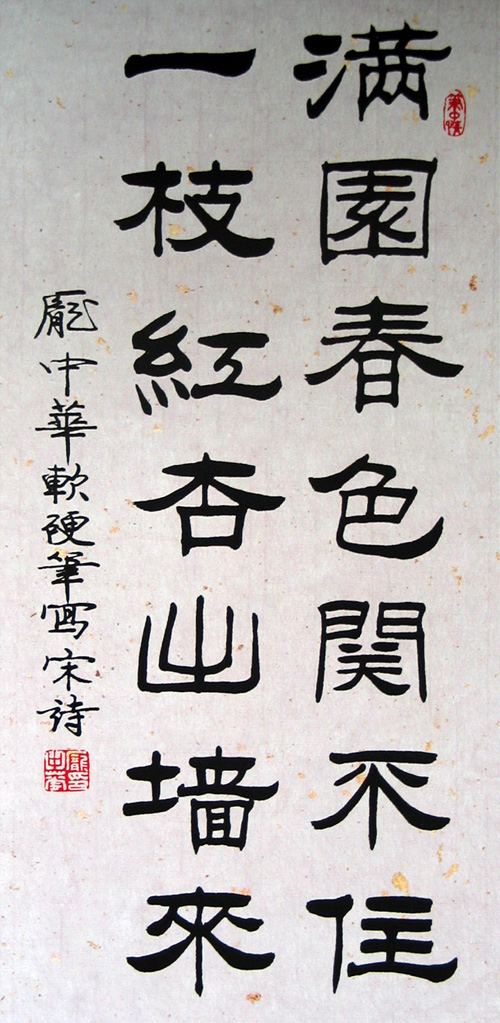 满園春色関不住
一枝紅杏出墙來
龐中華軟硬筆寫宋詩